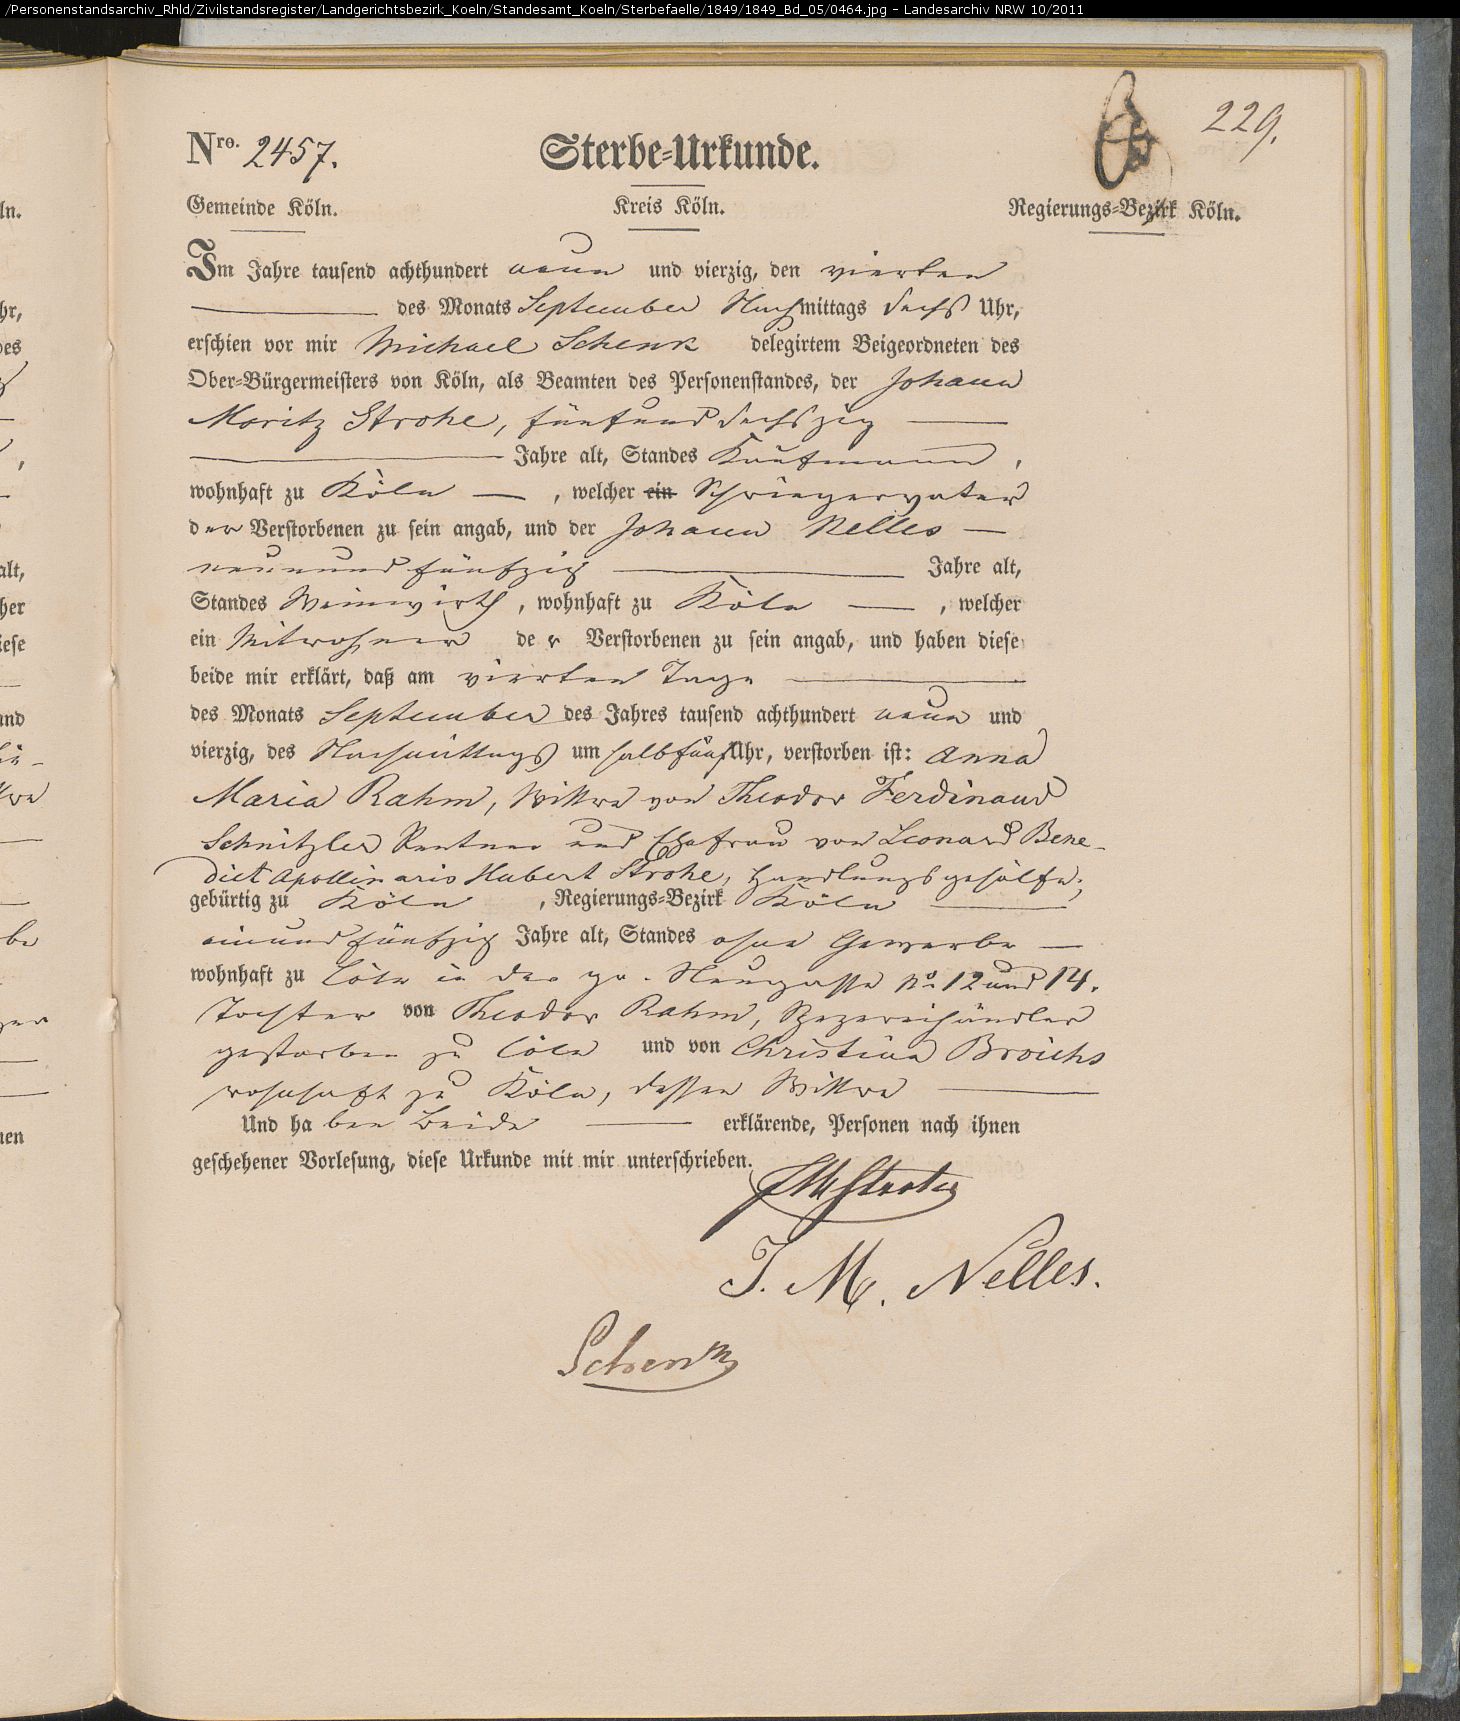 /Personenstandsarchiv_Rhld/Zivilstandsregister/Landgerichtsbezirk_Koeln/Standesamt_Koeln/Sterbefaelle/1849/1849_Bd_05/0464.jpg - Landesarchiv NRW 10/2011
229.
Nro. 2457. Sterbe-Urkunde.
Gemeinde Köln. Kreis Köln. Regierungs-Bezirk Köln.
Im Jahre tausend achthundert neun und vierzig, den vierten
des Monats September Nachmittags sechs Uhr,
erschien vor mir Michael Schenk delegirtem Beigeordneten des
Ober-Bürgermeisters von Köln, als Beamten des Personenstandes, der Johann
Moritz Strohe, fünfund sechszig
Jahre alt, Standes Kaufmann,
wohnhaft zu Köln, welcher ein Schwiegervater
der Verstorbenen zu sein angab, und der Johann Nelles
neunundfünfzig Jahre alt,
Standes Weinwirth, wohnhaft zu Köln, welcher
ein Mitwohner der Verstorbenen zu sein angab, und haben diese
beide mir erklärt, daß am vierten Tage
des Monats September des Jahres tausend achthundert neun und
vierzig, des Nachmittags um halbfünf Uhr, verstorben ist: Anna
Maria Rahm, Wittwe von Theodor Ferdinand
Schnitzler Rentner und Ehefrau von Leonard Bene-
dict Apollinaris Hubert Strohe, Handlungsgehülfe;
gebürtig zu Köln, Regierungs-Bezirk Köln
einundfünfzig Jahre alt, Standes ohne Gewerbe
wohnhaft zu Cöln in der gr. Neugasse No 12 und 14.
Tochter von Theodor Rahm, Spezereihändler
gestorben zu Cöln und von Christina Broichs
wohnhaft zu Köln, dessen Wittwe
Und haben beide erklärende, Personen nach ihnen
geschehener Vorlesung, diese Urkunde mit mir unterschrieben.
JM Strohe
J. M. Nelles.
Schenk